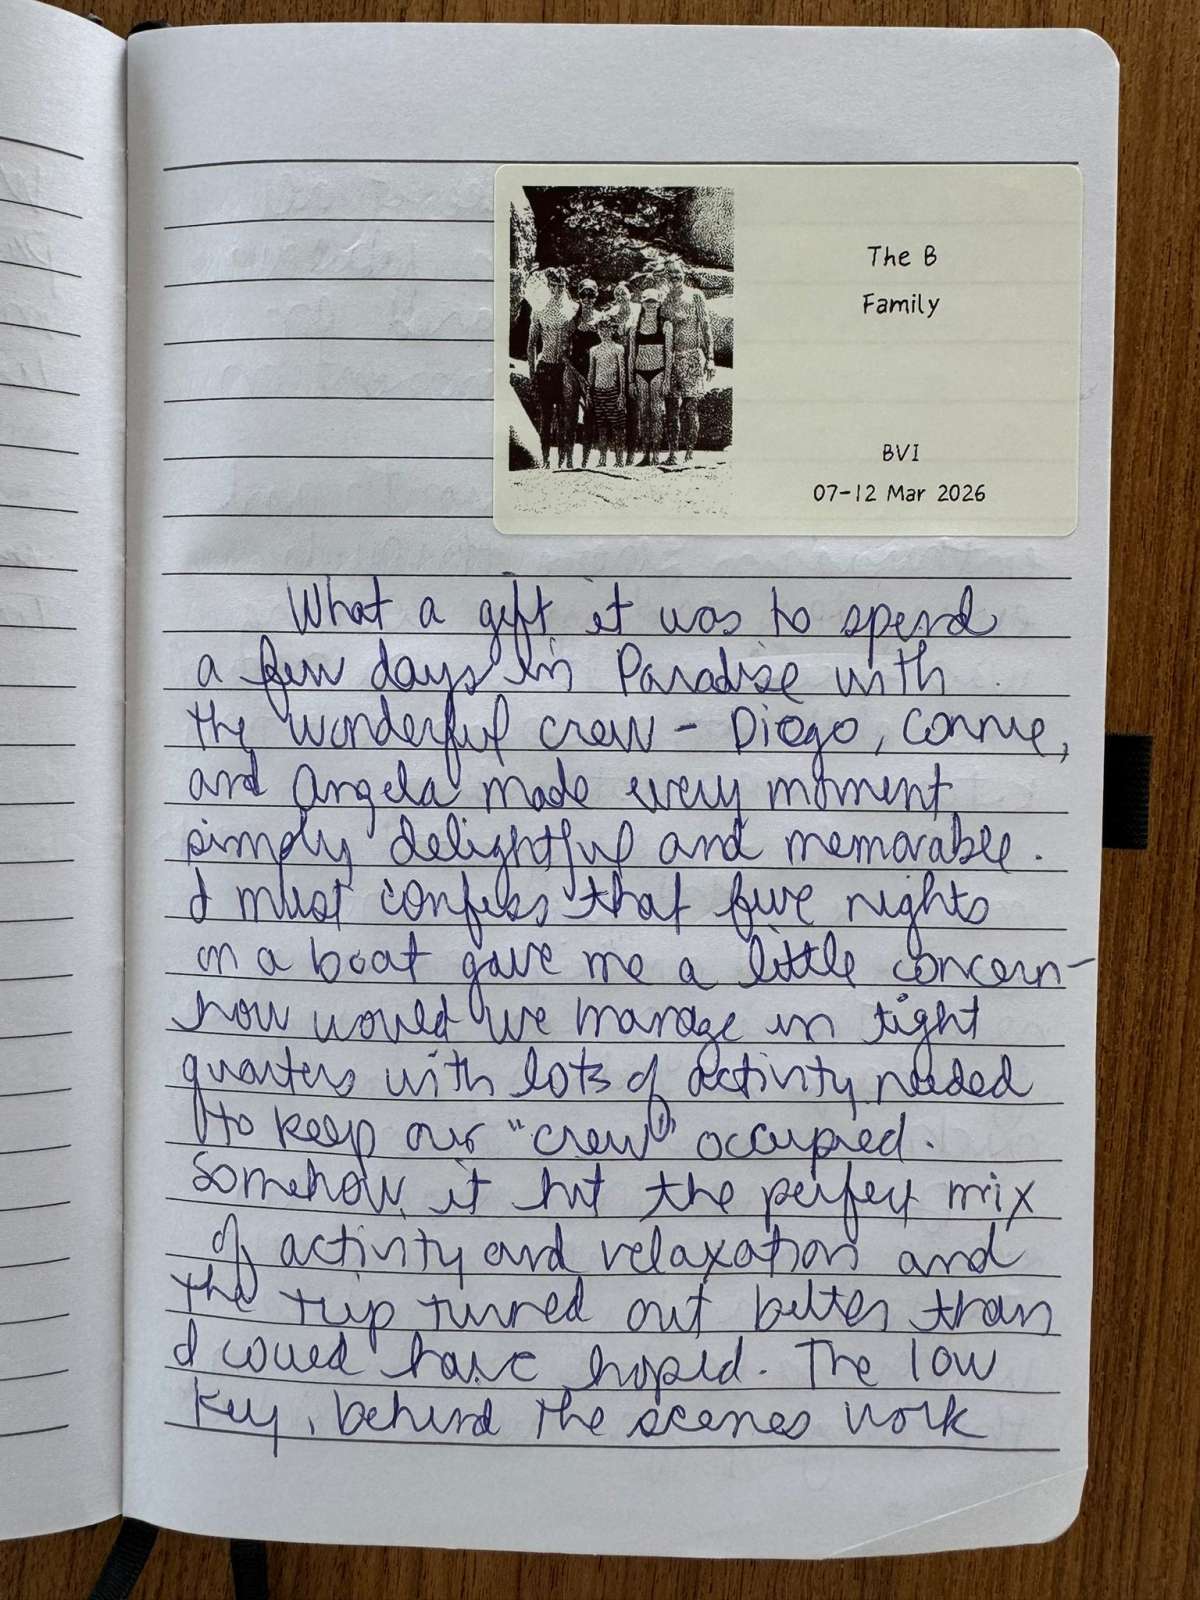 The B
Family
BVI
07-12 Mar 2026
What a gift it was to spend
a few days in Paradise with
the wonderful crew - Diego, Connie,
and Angela made every moment
simply delightful and memorable.
I must confess that five nights
on a boat gave me a little concern -
how would we manage in tight
quarters with lots of activity needed
to keep our "crew" occupied.
Somehow, it hit the perfect mix
of activity and relaxation and
the trip turned out better than
I could have hoped. The low
key, behind the scenes work